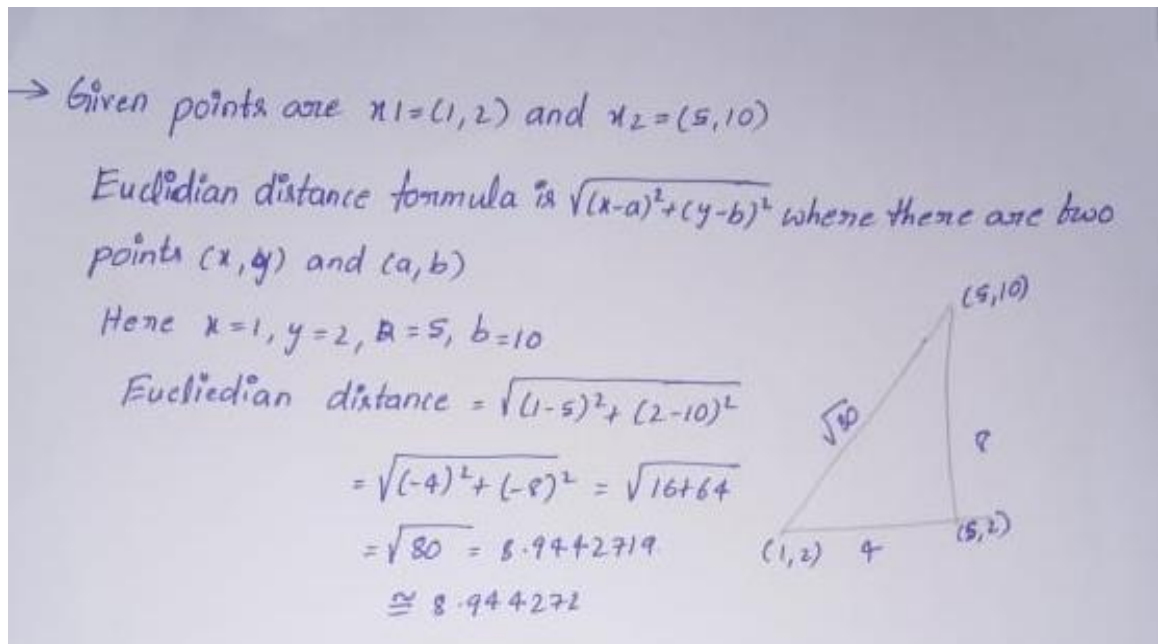 → Given points are x1=(1,2) and x2=(5,10)
Euclidian distance formula is √(x-a)²+(y-b)² where there are two
points (x,y) and (a,b)
Here x=1, y=2, a=5, b=10
Eucliedian distance = √(1-5)²+(2-10)²
= √(-4)²+(-8)² = √16+64
= √80 = 8.9442719
≅ 8.944272
(5,10)
√80
8
(1,2) 4 (5,2)